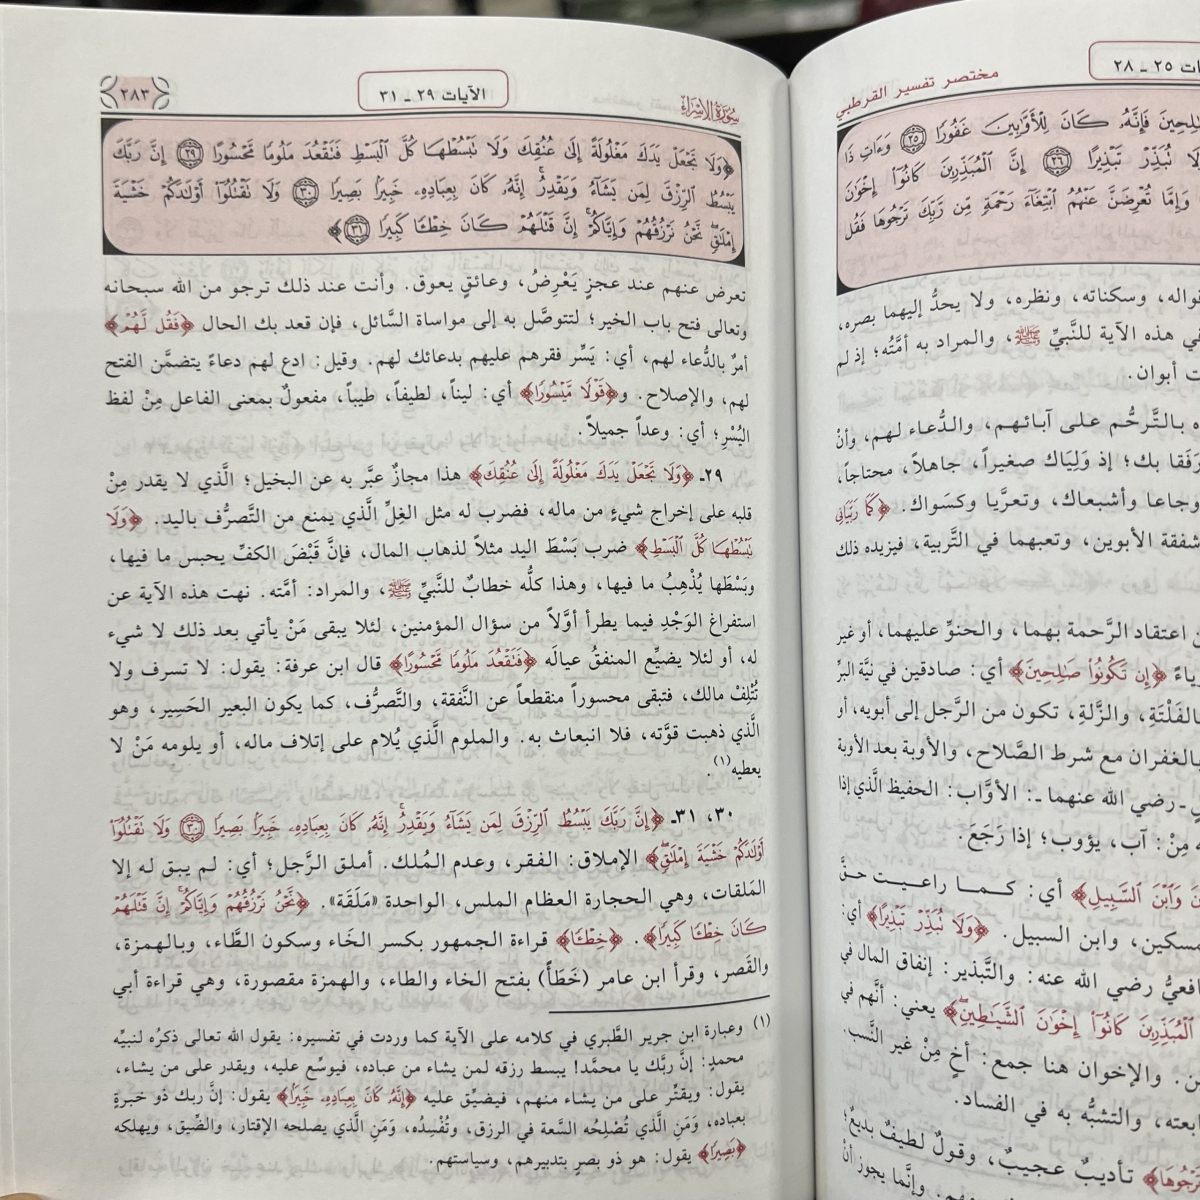 مختصر تفسير القرطبي
ات ٢٥ ـ ٢٨
صَٰلِحِينَ فَإِنَّهُۥ كَانَ لِلْأَوَّٰبِينَ غَفُورًا ٢٥ وَءَاتِ ذَا
لَا تُبَذِّرْ تَبْذِيرًا ٢٦ إِنَّ ٱلْمُبَذِّرِينَ كَانُوٓا۟ إِخْوَٰنَ
وَإِمَّا تُعْرِضَنَّ عَنْهُمُ ٱبْتِغَآءَ رَحْمَةٍ مِّن رَّبِّكَ تَرْجُوهَا فَقُل
قواله، وسكناته، ونظره، ولا يحدُّ إليهما بصره،
في هذه الآية للنَّبيِّ ﷺ، والمراد به أمَّته؛ إذ لم
ت أبوان.
ه بالتَّرحُّم على آبائهم، والدُّعاء لهم، وأنْ
رَفَقا بك؛ إذ وَلِيَاك صغيراً، جاهلاً، محتاجاً،
وجاعا وأشبعاك، وتعرَّيا وكسَواك. ﴿كَمَا رَبَّيَانِى
شفقة الأبوين، وتعبهما في التَّربية، فيزيده ذلك
ن اعتقاد الرَّحمة بهما، والحنوِّ عليهما، أو غير
ياءً ﴿إِن تَكُونُوا۟ صَٰلِحِينَ﴾ أي: صادقين في نيَّة البرِّ
بالفَلْتَةِ، والزَّلةِ، تكون من الرَّجل إلى أبويه، أو
بالغفران مع شرط الصَّلاح، والأوبة بعد الأوبة
ـ رضي الله عنهما ـ: الأوَّاب: الحفيظ الَّذي إذا
ه مِنْ: آب، يؤوب؛ إذا رَجَعَ.
نَ وَٱبْنَ ٱلسَّبِيلِ﴾ أي: كما راعيت حقَّ
مسكين، وابن السبيل. ﴿وَلَا تُبَذِّرْ تَبْذِيرًا﴾ أي:
افعيُّ رضي الله عنه: والتَّبذير: إنفاق المال في
ٱلْمُبَذِّرِينَ كَانُوٓا۟ إِخْوَٰنَ ٱلشَّيَٰطِينِ﴾ يعني: أنَّهم في
ن. والإخوان هنا جمع: أخٍ مِنْ غير النَّسب
ابعته، والتشبُّه به في الفساد.
تَرْجُوهَا﴾ تأديبٌ عجيبٌ، وقولٌ لطيفٌ بديعٌ؛
هم. وإنَّما يجوز أنْ
سُورَةُ الإِسْرَاءِ
الآيات ٢٩ ـ ٣١
٢٨٣
﴿وَلَا تَجْعَلْ يَدَكَ مَغْلُولَةً إِلَىٰ عُنُقِكَ وَلَا تَبْسُطْهَا كُلَّ ٱلْبَسْطِ فَتَقْعُدَ مَلُومًا مَّحْسُورًا ٢٩ إِنَّ رَبَّكَ
يَبْسُطُ ٱلرِّزْقَ لِمَن يَشَآءُ وَيَقْدِرُ ۚ إِنَّهُۥ كَانَ بِعِبَادِهِۦ خَبِيرًۢا بَصِيرًا ٣٠ وَلَا تَقْتُلُوٓا۟ أَوْلَٰدَكُمْ خَشْيَةَ
إِمْلَٰقٍ ۖ نَّحْنُ نَرْزُقُهُمْ وَإِيَّاكُمْ ۚ إِنَّ قَتْلَهُمْ كَانَ خِطْـًٔا كَبِيرًا ٣١﴾
تعرض عنهم عند عجزٍ يَعْرِضُ، وعائقٍ يعوق. وأنت عند ذلك ترجو من الله سبحانه
وتعالى فتح باب الخير؛ لتتوصَّل به إلى مواساة السَّائل، فإن قعد بك الحال ﴿فَقُل لَّهُمْ﴾
أمرٌ بالدُّعاء لهم، أي: يَسِّر فقرهم عليهم بدعائك لهم. وقيل: ادع لهم دعاءً يتضمَّن الفتح
لهم، والإصلاح. و﴿قَوْلًا مَّيْسُورًا﴾ أي: ليناً، لطيفاً، طيباً، مفعولٌ بمعنى الفاعل مِنْ لفظ
اليُسْرِ؛ أي: وعداً جميلاً.
٢٩ـ ﴿وَلَا تَجْعَلْ يَدَكَ مَغْلُولَةً إِلَىٰ عُنُقِكَ﴾ هذا مجازٌ عبَّر به عن البخيل؛ الَّذي لا يقدر مِنْ
قلبه على إخراج شيءٍ من ماله، فضرب له مثل الغِلِّ الَّذي يمنع من التَّصرُّف باليد. ﴿وَلَا
تَبْسُطْهَا كُلَّ ٱلْبَسْطِ﴾ ضرب بَسْطَ اليد مثلاً لذهاب المال، فإنَّ قَبْضَ الكفِّ يحبس ما فيها،
وبَسْطَها يُذْهِبُ ما فيها، وهذا كلُّه خطابٌ للنَّبيِّ ﷺ، والمراد: أمَّته. نهت هذه الآية عن
استفراغ الوَجْدِ فيما يطرأ أوَّلاً من سؤال المؤمنين، لئلا يبقى مَنْ يأتي بعد ذلك لا شيء
له، أو لئلا يضيِّع المنفقُ عيالَه ﴿فَتَقْعُدَ مَلُومًا مَّحْسُورًا﴾ قال ابن عرفة: يقول: لا تسرف ولا
تُتْلِفْ مالك، فتبقى محسوراً منقطعاً عن النَّفقة، والتَّصرُّف، كما يكون البعير الحَسِير، وهو
الَّذي ذهبت قوَّته، فلا انبعاث به. والملوم الَّذي يُلام على إتلاف ماله، أو يلومه مَنْ لا
يعطيه(١).
٣٠، ٣١ـ ﴿إِنَّ رَبَّكَ يَبْسُطُ ٱلرِّزْقَ لِمَن يَشَآءُ وَيَقْدِرُ ۚ إِنَّهُۥ كَانَ بِعِبَادِهِۦ خَبِيرًۢا بَصِيرًا ٣٠ وَلَا تَقْتُلُوٓا۟
أَوْلَٰدَكُمْ خَشْيَةَ إِمْلَٰقٍ﴾ الإملاق: الفقر، وعدم المُلك. أملق الرَّجل؛ أي: لم يبق له إلا
المَلقات، وهي الحجارة العظام الملس، الواحدة «مَلَقَة». ﴿نَّحْنُ نَرْزُقُهُمْ وَإِيَّاكُمْ ۚ إِنَّ قَتْلَهُمْ
كَانَ خِطْـًٔا كَبِيرًا﴾. ﴿خِطْـًٔا﴾ قراءة الجمهور بكسر الخَاء وسكون الطَّاء، وبالهمزة،
والقَصر، وقرأ ابن عامر (خَطَأً) بفتح الخاء والطاء، والهمزة مقصورة، وهي قراءة أبي
(١) وعبارة ابن جرير الطَّبري في كلامه على الآية كما وردت في تفسيره: يقول الله تعالى ذكرُه لنبيِّه
محمدٍ: إنَّ ربَّك يا محمَّد! يبسط رزقه لمن يشاء من عباده، فيوسِّع عليه، ويقدر على من يشاء،
يقول: ويقتِّر على من يشاء منهم، فيضيِّق عليه ﴿إِنَّهُۥ كَانَ بِعِبَادِهِۦ خَبِيرًۢا﴾ يقول: إنَّ ربك ذو خبرةٍ
بعباده، وَمَنِ الَّذي تُصْلِحُه السَّعة في الرزق، وتُفْسِدُه، وَمَنِ الَّذي يصلحه الإقتار، والضِّيق، ويهلكه
﴿بَصِيرًا﴾ يقول: هو ذو بصرٍ بتدبيرهم، وسياستهم.